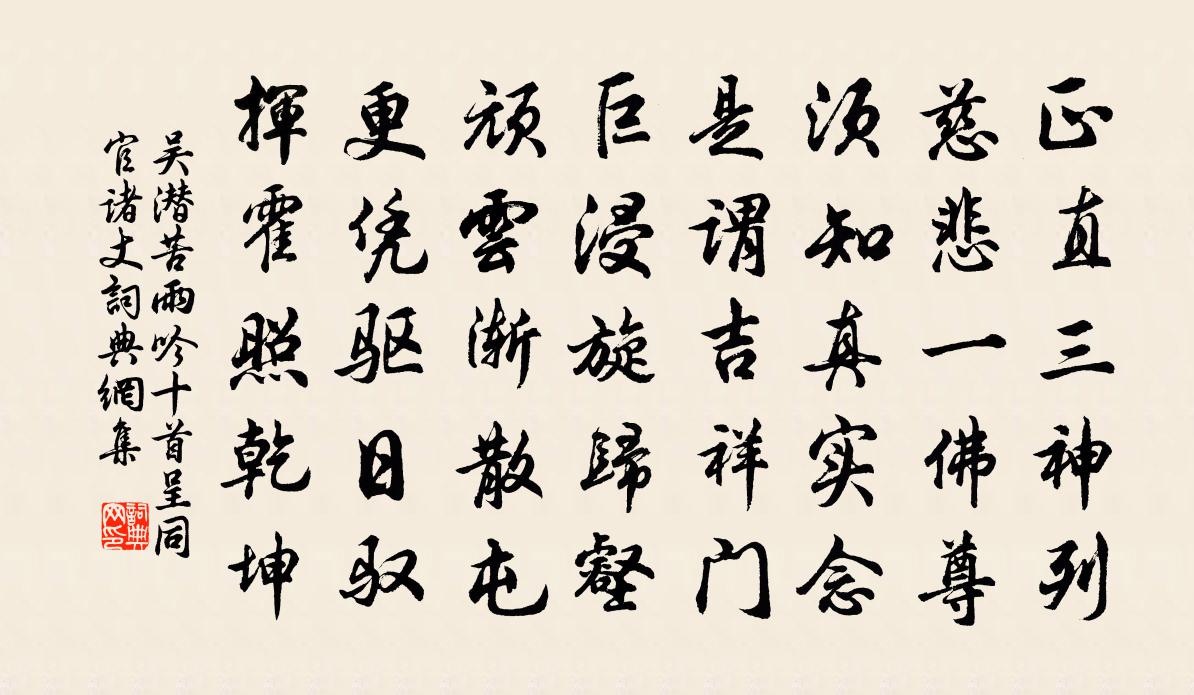 正直三神列
慈悲一佛尊
须知真实念
是谓吉祥门
巨浸旋歸壑
顽雲渐散屯
更凭驱日驭
揮霍照乾坤
吴潜苦雨吟十首呈同
官诸丈詞典網集
詞典网印